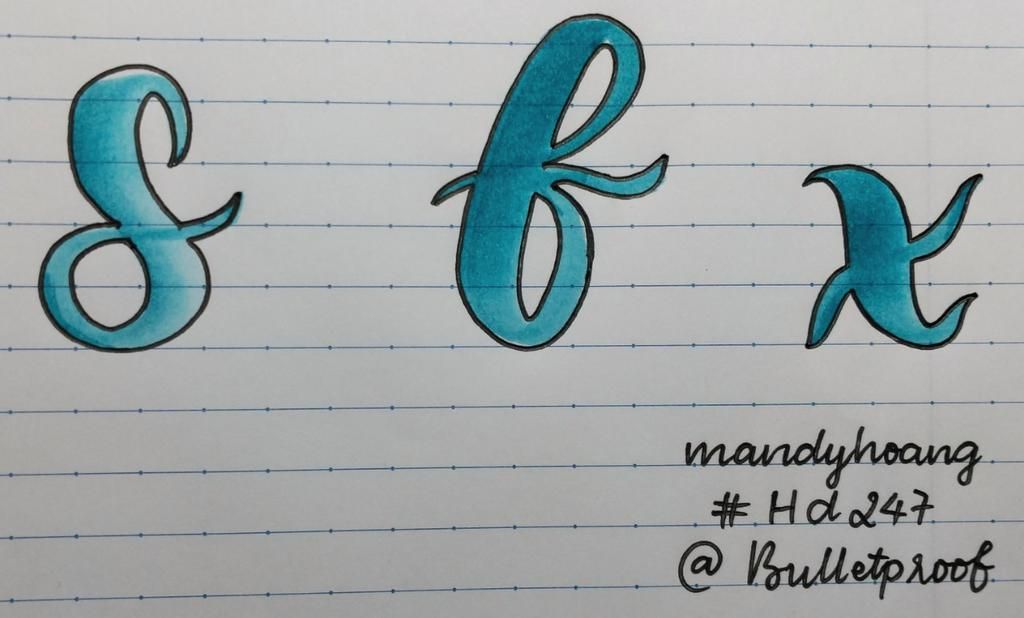 s f x
mandyhoang
# Hd 247
@ Bulletproof